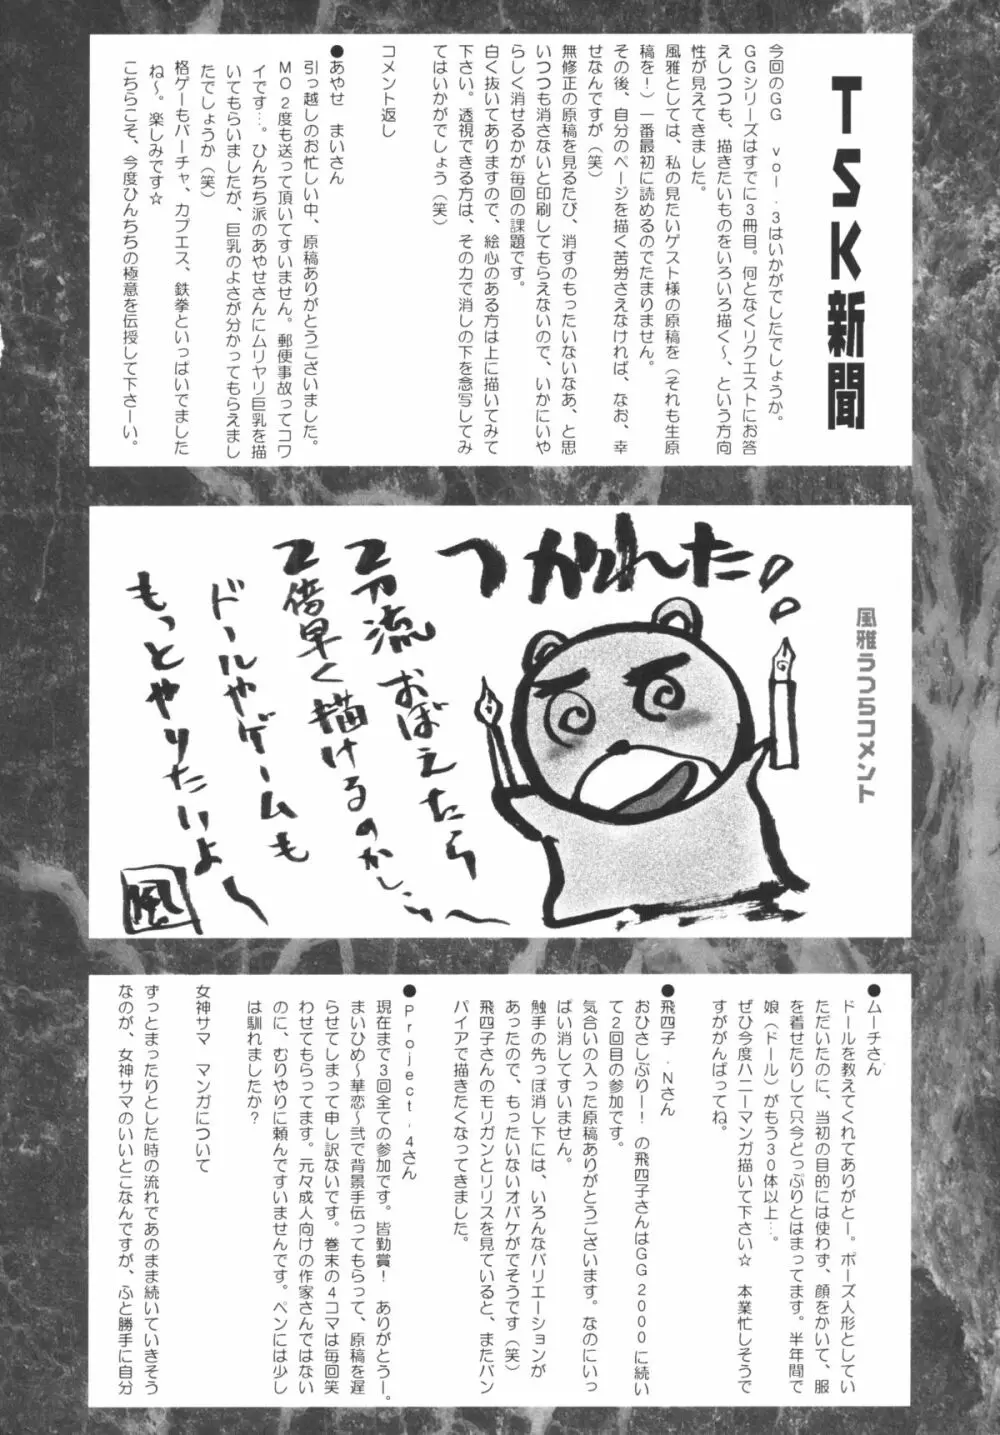 TSK新聞
今回のGG vol.3はいかがでしたでしょうか。
GGシリーズはすでに3冊目。何となくリクエストにお答
えしつつも、描きたいものをいろいろ描く～、という方向
性が見えてきました。
風雅としては、私の見たいゲスト様の原稿を（それも生原
稿を！）一番最初に読めるのでたまりません。
その後、自分のページを描く苦労さえなければ、なお、幸
せなんですが（笑）
無修正の原稿を見るたび、消すのもったいないなあ、と思
いつつも消さないと印刷してもらえないので、いかにいや
らしく消せるかが毎回の課題です。
白く抜いてありますので、絵心のある方は上に描いてみて
下さい。透視できる方は、その力で消しの下を念写してみ
てはいかがでしょう（笑）
コメント返し
●あやせ まいさん
引っ越しのお忙しい中、原稿ありがとうございました。
MO2度も送って頂いてすいません。郵便事故ってコワ
イです…。ひんちち派のあやせさんにムリヤリ巨乳を描
いてもらいましたが、巨乳のよさが分かってもらえまし
たでしょうか（笑）
格ゲーもバーチャ、カプエス、鉄拳といっぱいでました
ね～。楽しみです☆
こちらこそ、今度ひんちちの極意を伝授して下さーい。
風雅うつらコメント
つかれんた!。
2刀流おぼえたら
2倍早く描けるのかしら～
ドールやゲームも
もっとやりたいよ～
風
●ムーチさん
ドールを教えてくれてありがとー。ポーズ人形としてい
ただいたのに、当初の目的には使わず、顔をかいて、服
を着せたりして只今どっぷりとはまってます。半年間で
娘（ドール）がもう30体以上…。
ぜひ今度ハニーマンガ描いて下さい☆ 本業忙しそうで
すががんばってね。
●飛四子.Nさん
おひさしぶりー！の飛四子さんはGG2000に続い
て2回目の参加です。
気合いの入った原稿ありがとうございます。なのにいっ
ぱい消してすいません。
触手の先っぽ消し下には、いろんなバリエーションが
あったので、もったいないオバケがでそうです（笑）
飛四子さんのモリガンとリリスを見ていると、またバン
パイアで描きたくなってきました。
●Project.4さん
現在まで3回全ての参加です。皆勤賞！ ありがとうー。
まいひめ～華恋～弐で背景手伝ってもらって、原稿を遅
らせてしまって申し訳ないです。巻末の4コマは毎回笑
わせてもらってます。元々成人向けの作家さんではない
のに、むりやりに頼んですいませんです。ペンには少し
は馴れましたか？
女神サマ マンガについて
ずっとまったりとした時の流れであのまま続いていきそう
なのが、女神サマのいいとこなんですが、ふと勝手に自分